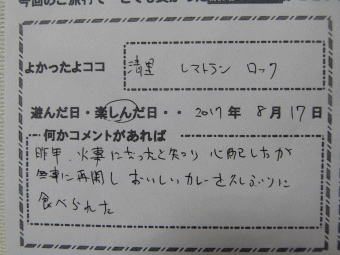 今回のご旅行で
よかったよココ 清里 レストラン ロック
遊んだ日・楽しんだ日・・ 2017年 8月17日
何かコメントがあれば
昨年、火事になったと知り 心配したが
無事に再開し おいしいカレーを久しぶりに
食べられた